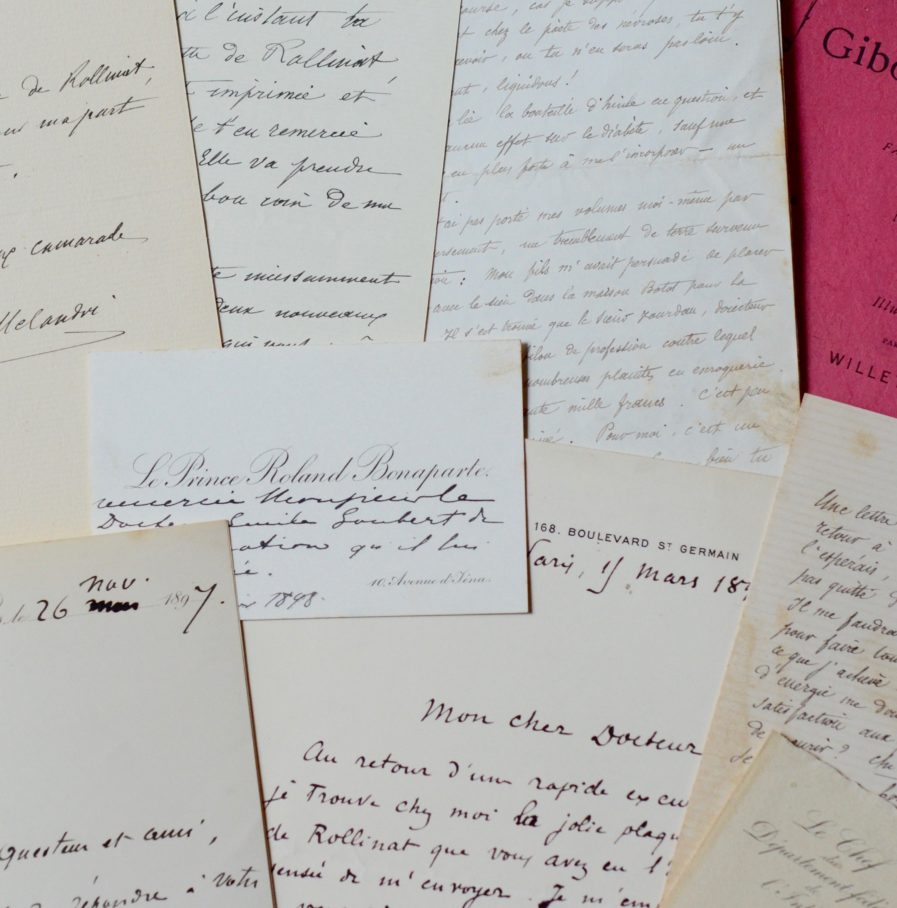 de Rollinat,
ma part
camarade
Melandri
l'instant ta
de Rollinat
imprimée et
t'en remercie
Elle va prendre
bon coin de ma
incessamment
deux nouveaux
chez le poète des névroses, tu t'y
ou tu n'en seras pas loin.
liquidons!
la bouteille d'hélice en question, et
aucun effet sur le diabète, sauf une
en plus forte à me l'incorporer — un
ai pas porté mes volumes moi-même par
un tremblement de terre survenu
Mon fils m'avait persuadé de placer
le sien dans la maison Botot pour la
Il s'est trouvé que le sieur Jourdan, directeur
de profession contre lequel
nombreuses plaintes en escroquerie
mille francs. C'est peu
Pour moi, c'est un
bien tu
Gibo
Illu
PAR
WILLE
Le Prince Roland Bonaparte.
remercie Monsieur le
Docteur Emile Goubert de
qu'il lui
10, Avenue d'Iéna.
1898.
168, BOULEVARD ST GERMAIN
Paris, 15 mars 189
Mon cher Docteur
Au retour d'une rapide excu
je trouve chez moi la jolie plaqu
de Rollinat que vous avez eu l'
de m'envoyer. Je m'em
le 26 nov. 1897.
questeur et ami,
répondre à votre
Une lettre
retour à
l'espérais,
pas quitté
Il me faudra
pour faire tou
ce que j'achève
d'énergie me do
satisfaction aux
de
Le Chef
du
Département
de